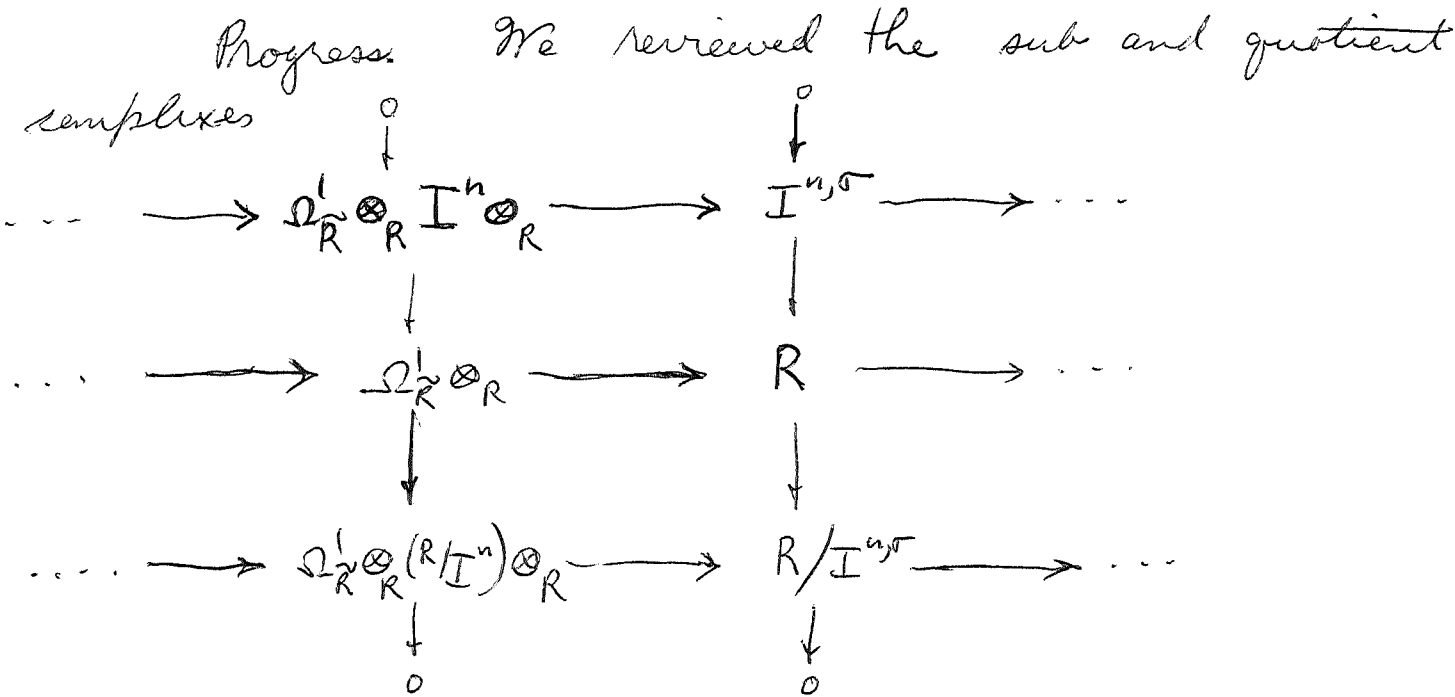 Progress. We reviewed the sub and quotient
complexes 0 0
... ⟶ Ω¹_R̃ ⊗_R Iⁿ ⊗_R ⟶ I^{n,σ} ⟶ ....
... ⟶ Ω¹_R̃ ⊗_R ⟶ R ⟶ ....
.... ⟶ Ω¹_R̃ ⊗_R (R/Iⁿ) ⊗_R ⟶ R/I^{n,σ} ⟶ ...
0 0